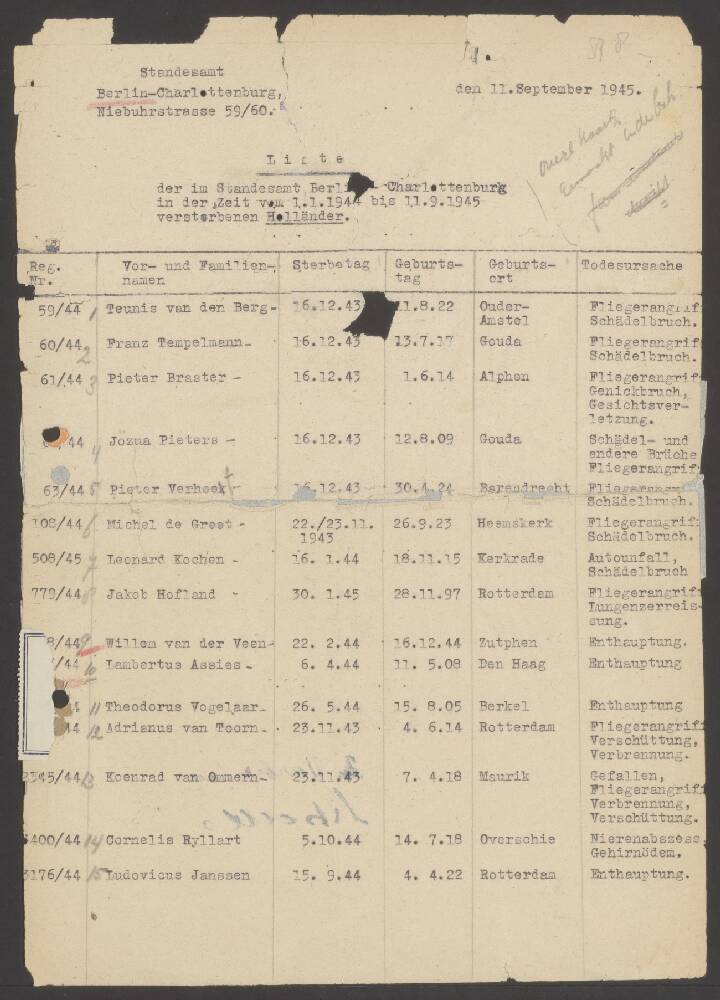 Standesamt
Berlin-Charlottenburg,
Niebuhrstrasse 59/60.
den 11.September 1945.
Liste
der im Standesamt Berlin-Charlottenburg
in der Zeit vom 1.1.1944 bis 11.9.1945
verstorbenen Holländer.
Reg. Nr. Vor- und Familien-namen Sterbetag Geburts-tag Geburts-ort Todesursache
59/44 1 Teunis van den Berg- 16.12.43 11.8.22 Ouder- Fliegerangriff
Amstel Schädelbruch.
60/44 2 Franz Tempelmann- 16.12.43 13.7.17 Gouda Fliegerangriff
Schädelbruch.
61/44 3 Pieter Braster - 16.12.43 1.6.14 Alphen Fliegerangriff
Genickbruch,
Gesichtsver-
letzung.
/44 4 Jozua Pieters - 16.12.43 12.8.09 Gouda Schädel- und
andere Brüche
Fliegerangriff
63/44 5 Pieter Verhoek 16.12.43 30.4.24 Barendrecht Fliegerangriff
Schädelbruch.
108/44 6 Michel de Groot - 22./23.11. 26.9.23 Heemskerk Fliegerangriff
1943 Schädelbruch.
508/45 7 Leonard Kochen - 16. 1.44 18.11.15 Kerkrade Autounfall,
Schädelbruch
779/44 8 Jakob Hofland - 30. 1.45 28.11.97 Rotterdam Fliegerangriff
Lungenzerreis-
sung.
8/44 9 Willem van der Veen- 22. 2.44 16.12.44 Zutphen Enthauptung.
/44 10 Lambertus Assies - 6. 4.44 11. 5.08 Den Haag Enthauptung
11 Theodorus Vogelaar- 26. 5.44 15. 8.05 Berkel Enthauptung
44 12 Adrianus van Toorn- 23.11.43 4. 6.14 Rotterdam Fliegerangriff
Verschüttung,
Verbrennung.
2345/44 13 Koenrad van Ommern- 23.11.43 7. 4.18 Maurik Gefallen,
Fliegerangriff
Verbrennung,
Verschüttung.
400/44 14 Cornelis Ryllart 5.10.44 14. 7.18 Overschie Nierenabszess,
Gehirnödem.
3176/44 15 Ludovicus Janssen 15. 9.44 4. 4.22 Rotterdam Enthauptung.